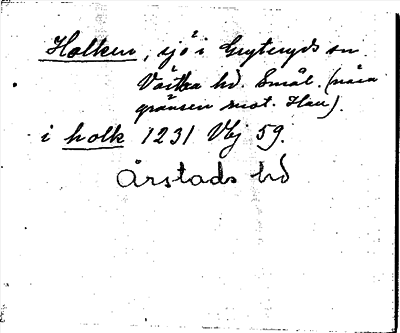 Holken, sjö i Gryteryds sn
Västbo hd. Smål. (nära
gränsen mot Hall).
i holk 1231 Vbj 59.
Årstads hd